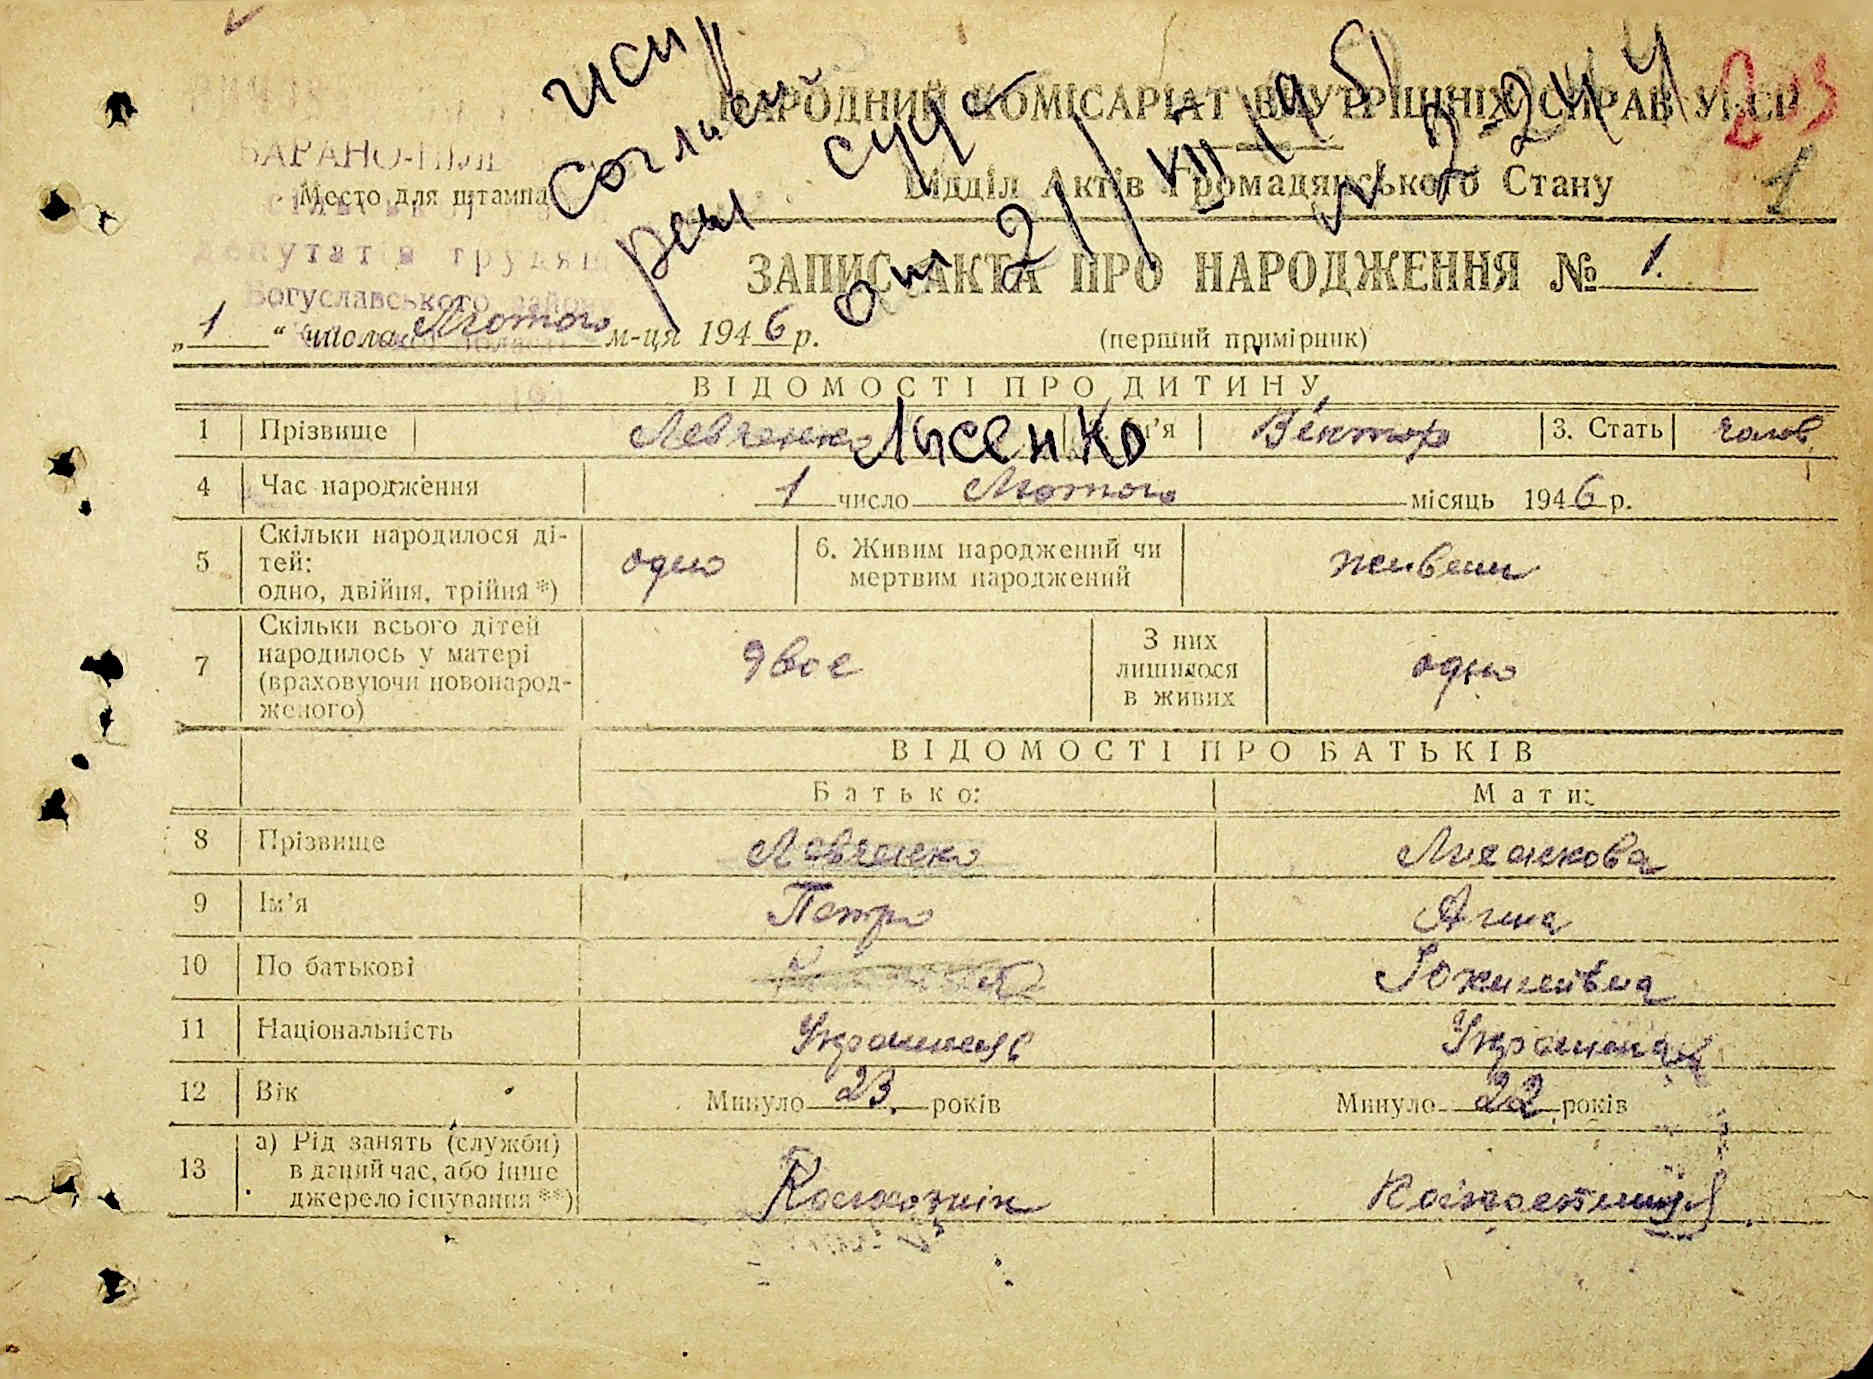 исп
Согласн
реш суда
от 21/VII 1951
N 2-244
203
1
НАРОДНИЙ КОМІСАРІАТ ВНУТРІШНІХ СПРАВ УРСР
БАРАНО-ПІЛЬ
Место для штампа
Відділ Актів Громадянського Стану
депутатів трудящ
Богуславського району
ЗАПИС АКТА ПРО НАРОДЖЕННЯ № 1.
„ 1 “ числа Лютого м-ця 1946 р. (перший примірник)
ВІДОМОСТІ ПРО ДИТИНУ
1 Прізвище Левченко Лысенко м'я Віктор 3. Стать чолов.
4 Час народження 1 число Лютого місяць 1946 р.
5 Скільки народилося ді-
тей:
одно, двійня, трійня *) одно 6. Живим народжений чи
мертвим народжений живим
7 Скільки всього дітей
народилось у матері
(враховуючи новонарод-
женого) двоє З них
лишилося
в живих одно
ВІДОМОСТІ ПРО БАТЬКІВ
Батько: Мати:
8 Прізвище Левченко Лисенкова
9 Ім'я Петро Анна
10 По батькові
11 Національність Українець Українка
12 Вік Минуло 23. років Минуло 22 років
13 а) Рід занять (служби)
в даний час, або інше
джерело існування **) Колхозник